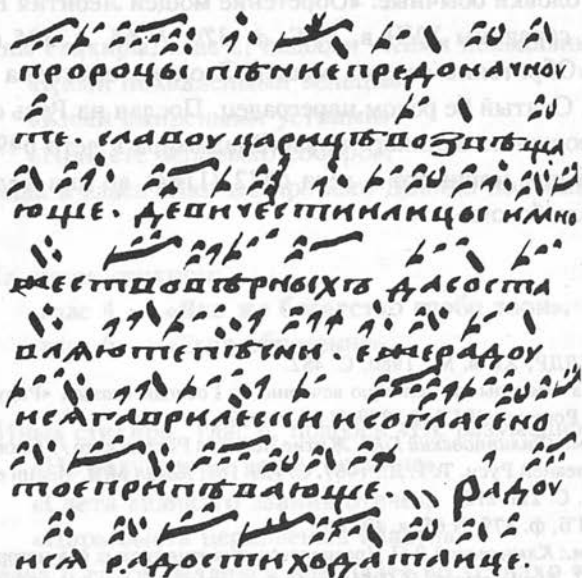 пророцы пѣние предоначноу
те · славоу царицѣ возвѣща
юще · девичести илицы имно
жество вѣрныхъ да воста
вляюте пѣсми емерадоу
исѧ гавриле ски и согласено
тое припѣвающе · радоу
исѧ радости ходатаице ·